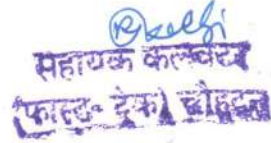 सहायक कलक्टर
(फास्ट- ट्रेक) चौहटन